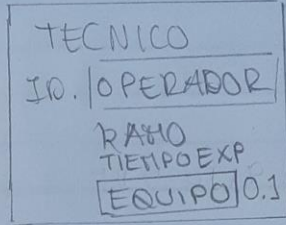 TECNICO
ID. OPERADOR
RAMO
TIEMPO EXP
EQUIPO 0.1